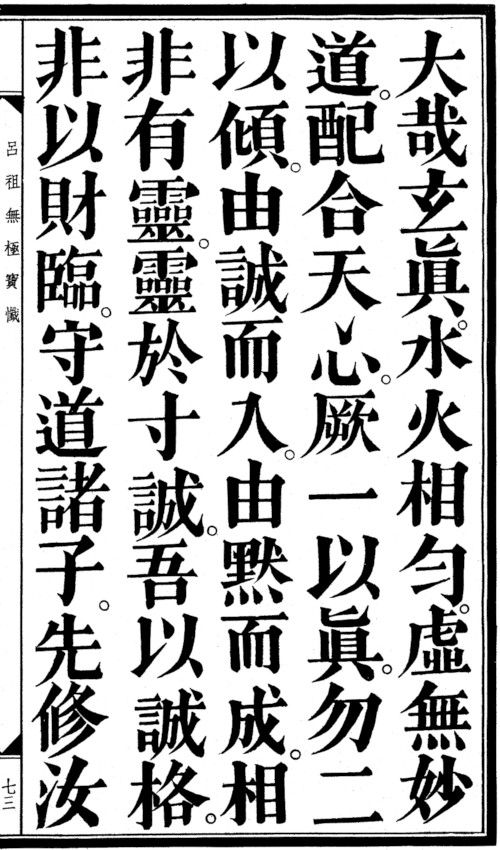 大哉玄眞。水火相勻。虛無妙
道。配合天心。厥一以眞。勿二
以傾。由誠而入。由默而成。相
非有靈。靈於寸誠。吾以誠格。
非以財臨。守道諸子。先修汝
呂祖無極寶懺
七三